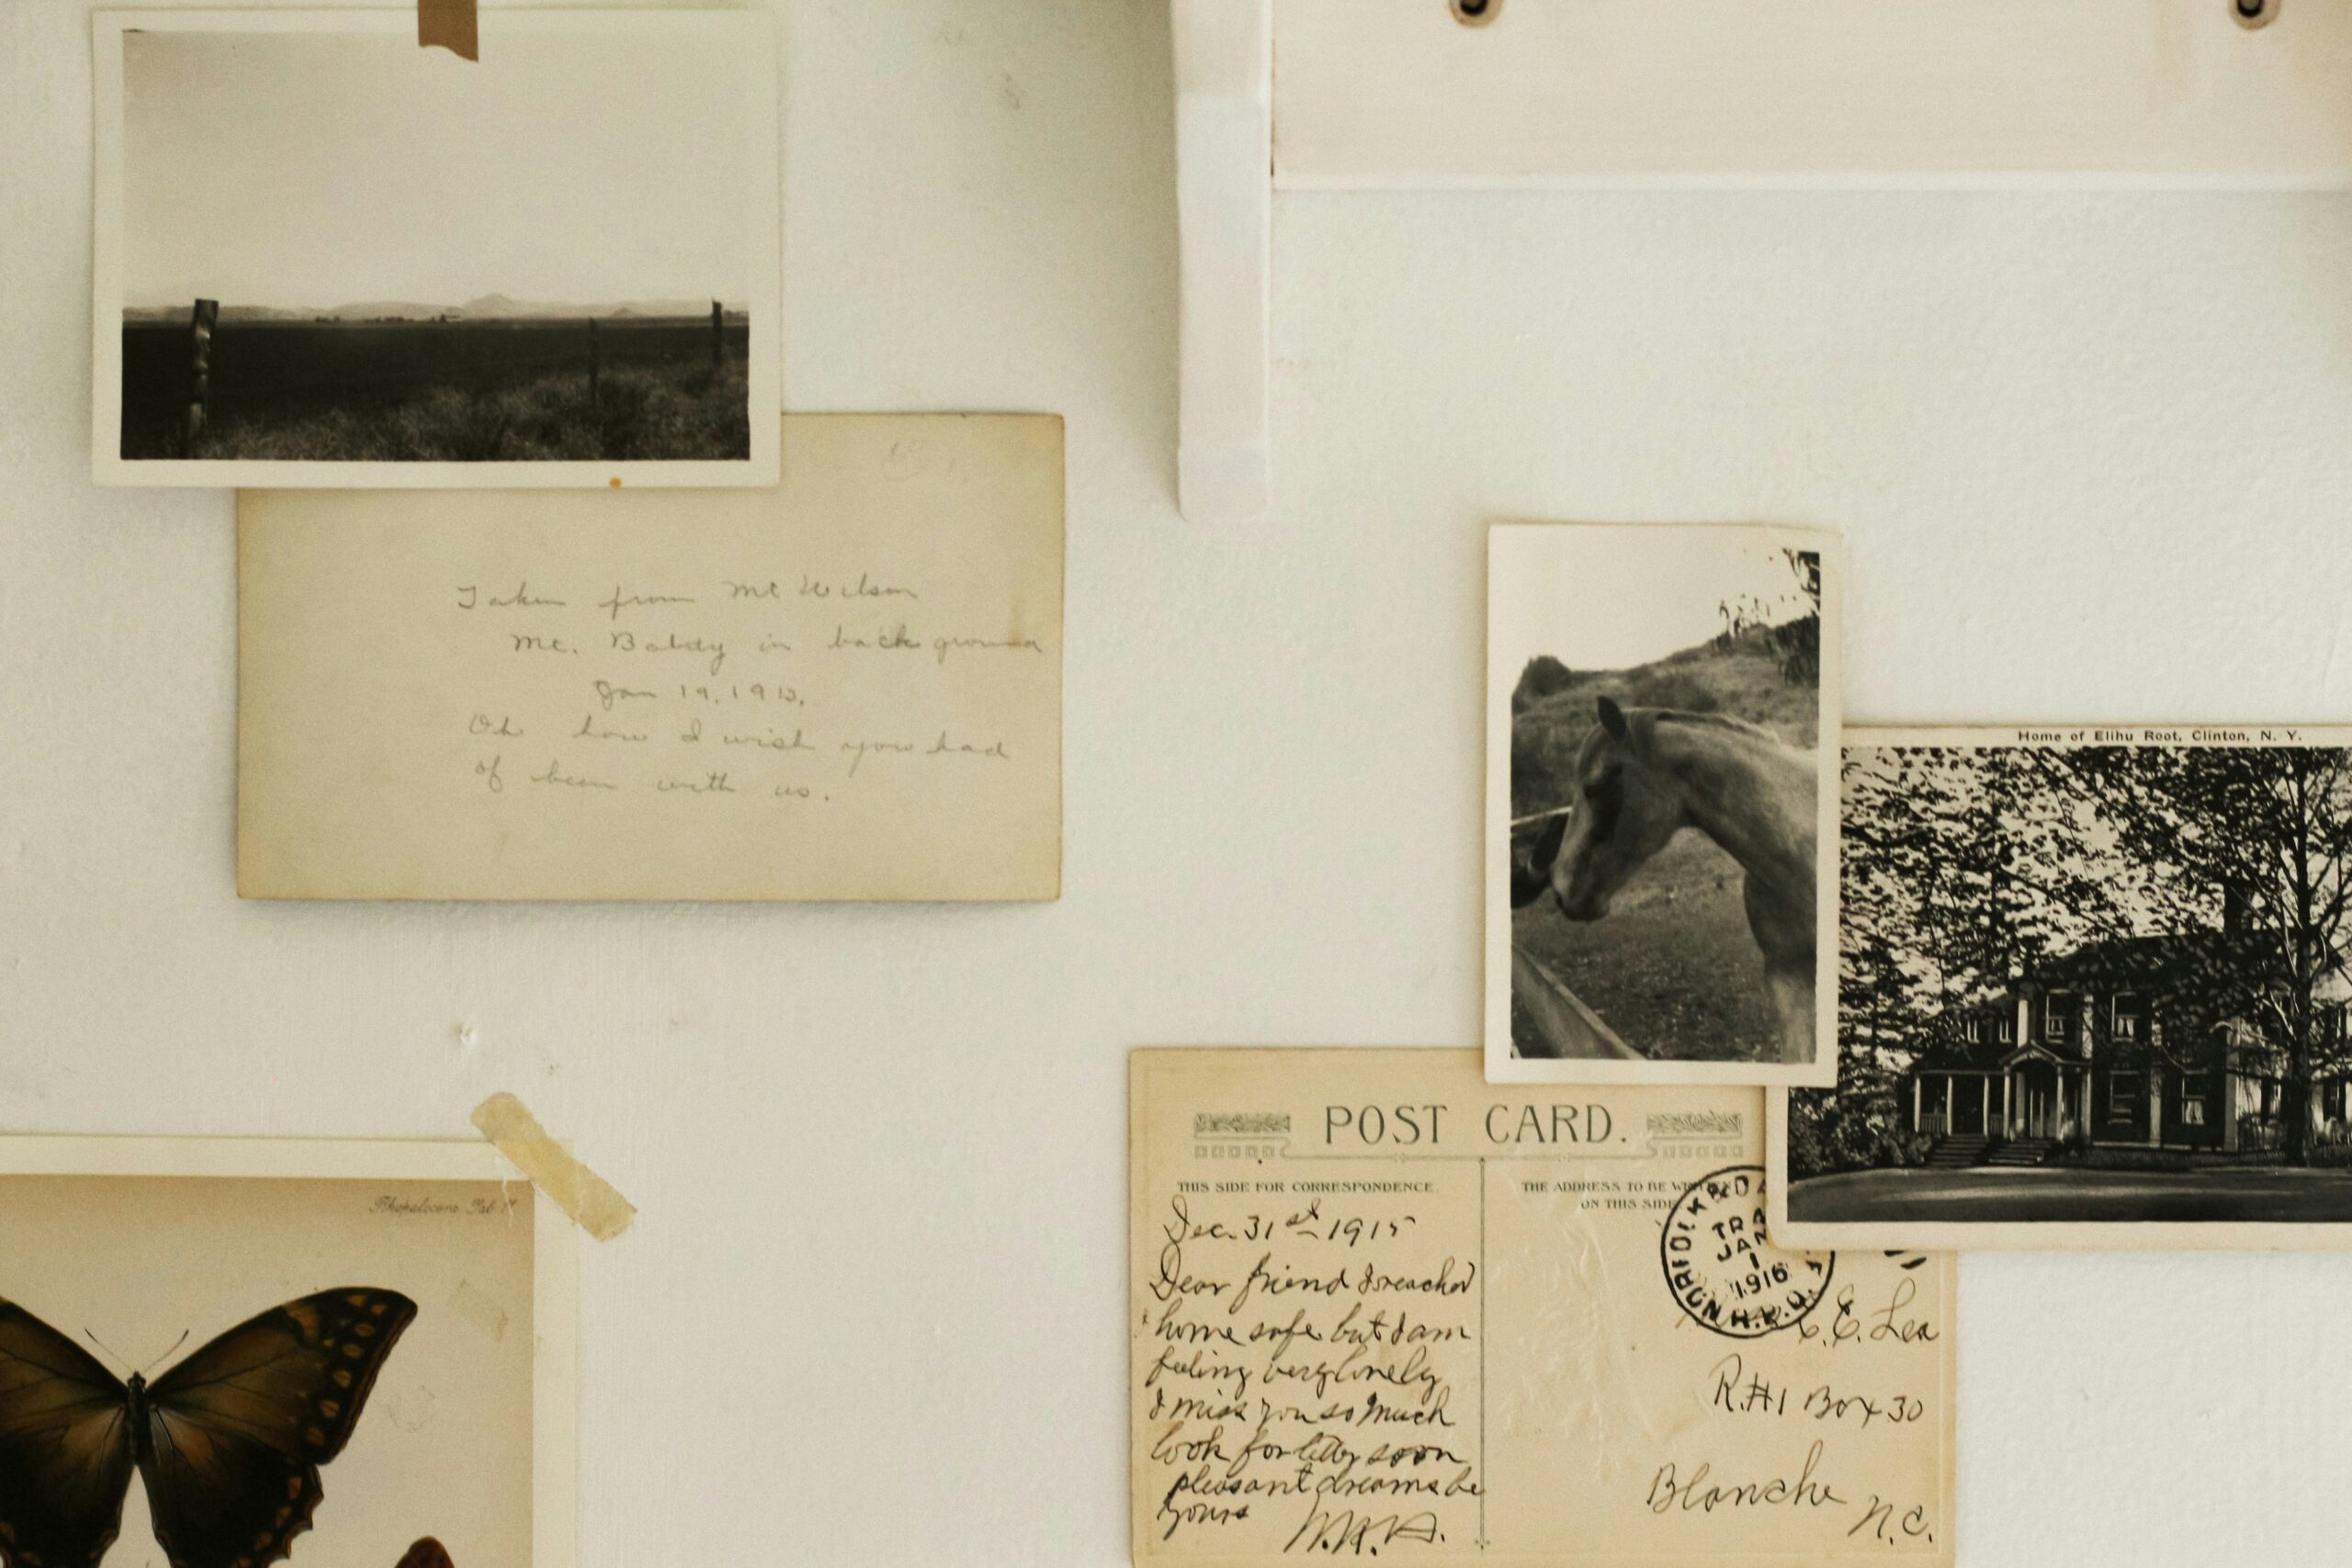 Taken from Mt Wilson
Mt. Baldy in back ground
Jan 19, 1913.
Oh how I wish you had
of been with us.
Home of Elihu Root, Clinton, N. Y.
POST CARD.
THIS SIDE FOR CORRESPONDENCE.
THE ADDRESS TO BE
ON THIS SIDE
Dec. 31st 1915
Dear friend I reached
home safe but I am
feeling very lonely
I miss you so much
look for letter soon
pleasant dreams be
yours
JAN
1
1916
R.P.O.
C. E. Lea
R.#1 Box 30
Blanche
N.C.
Rhopalocera